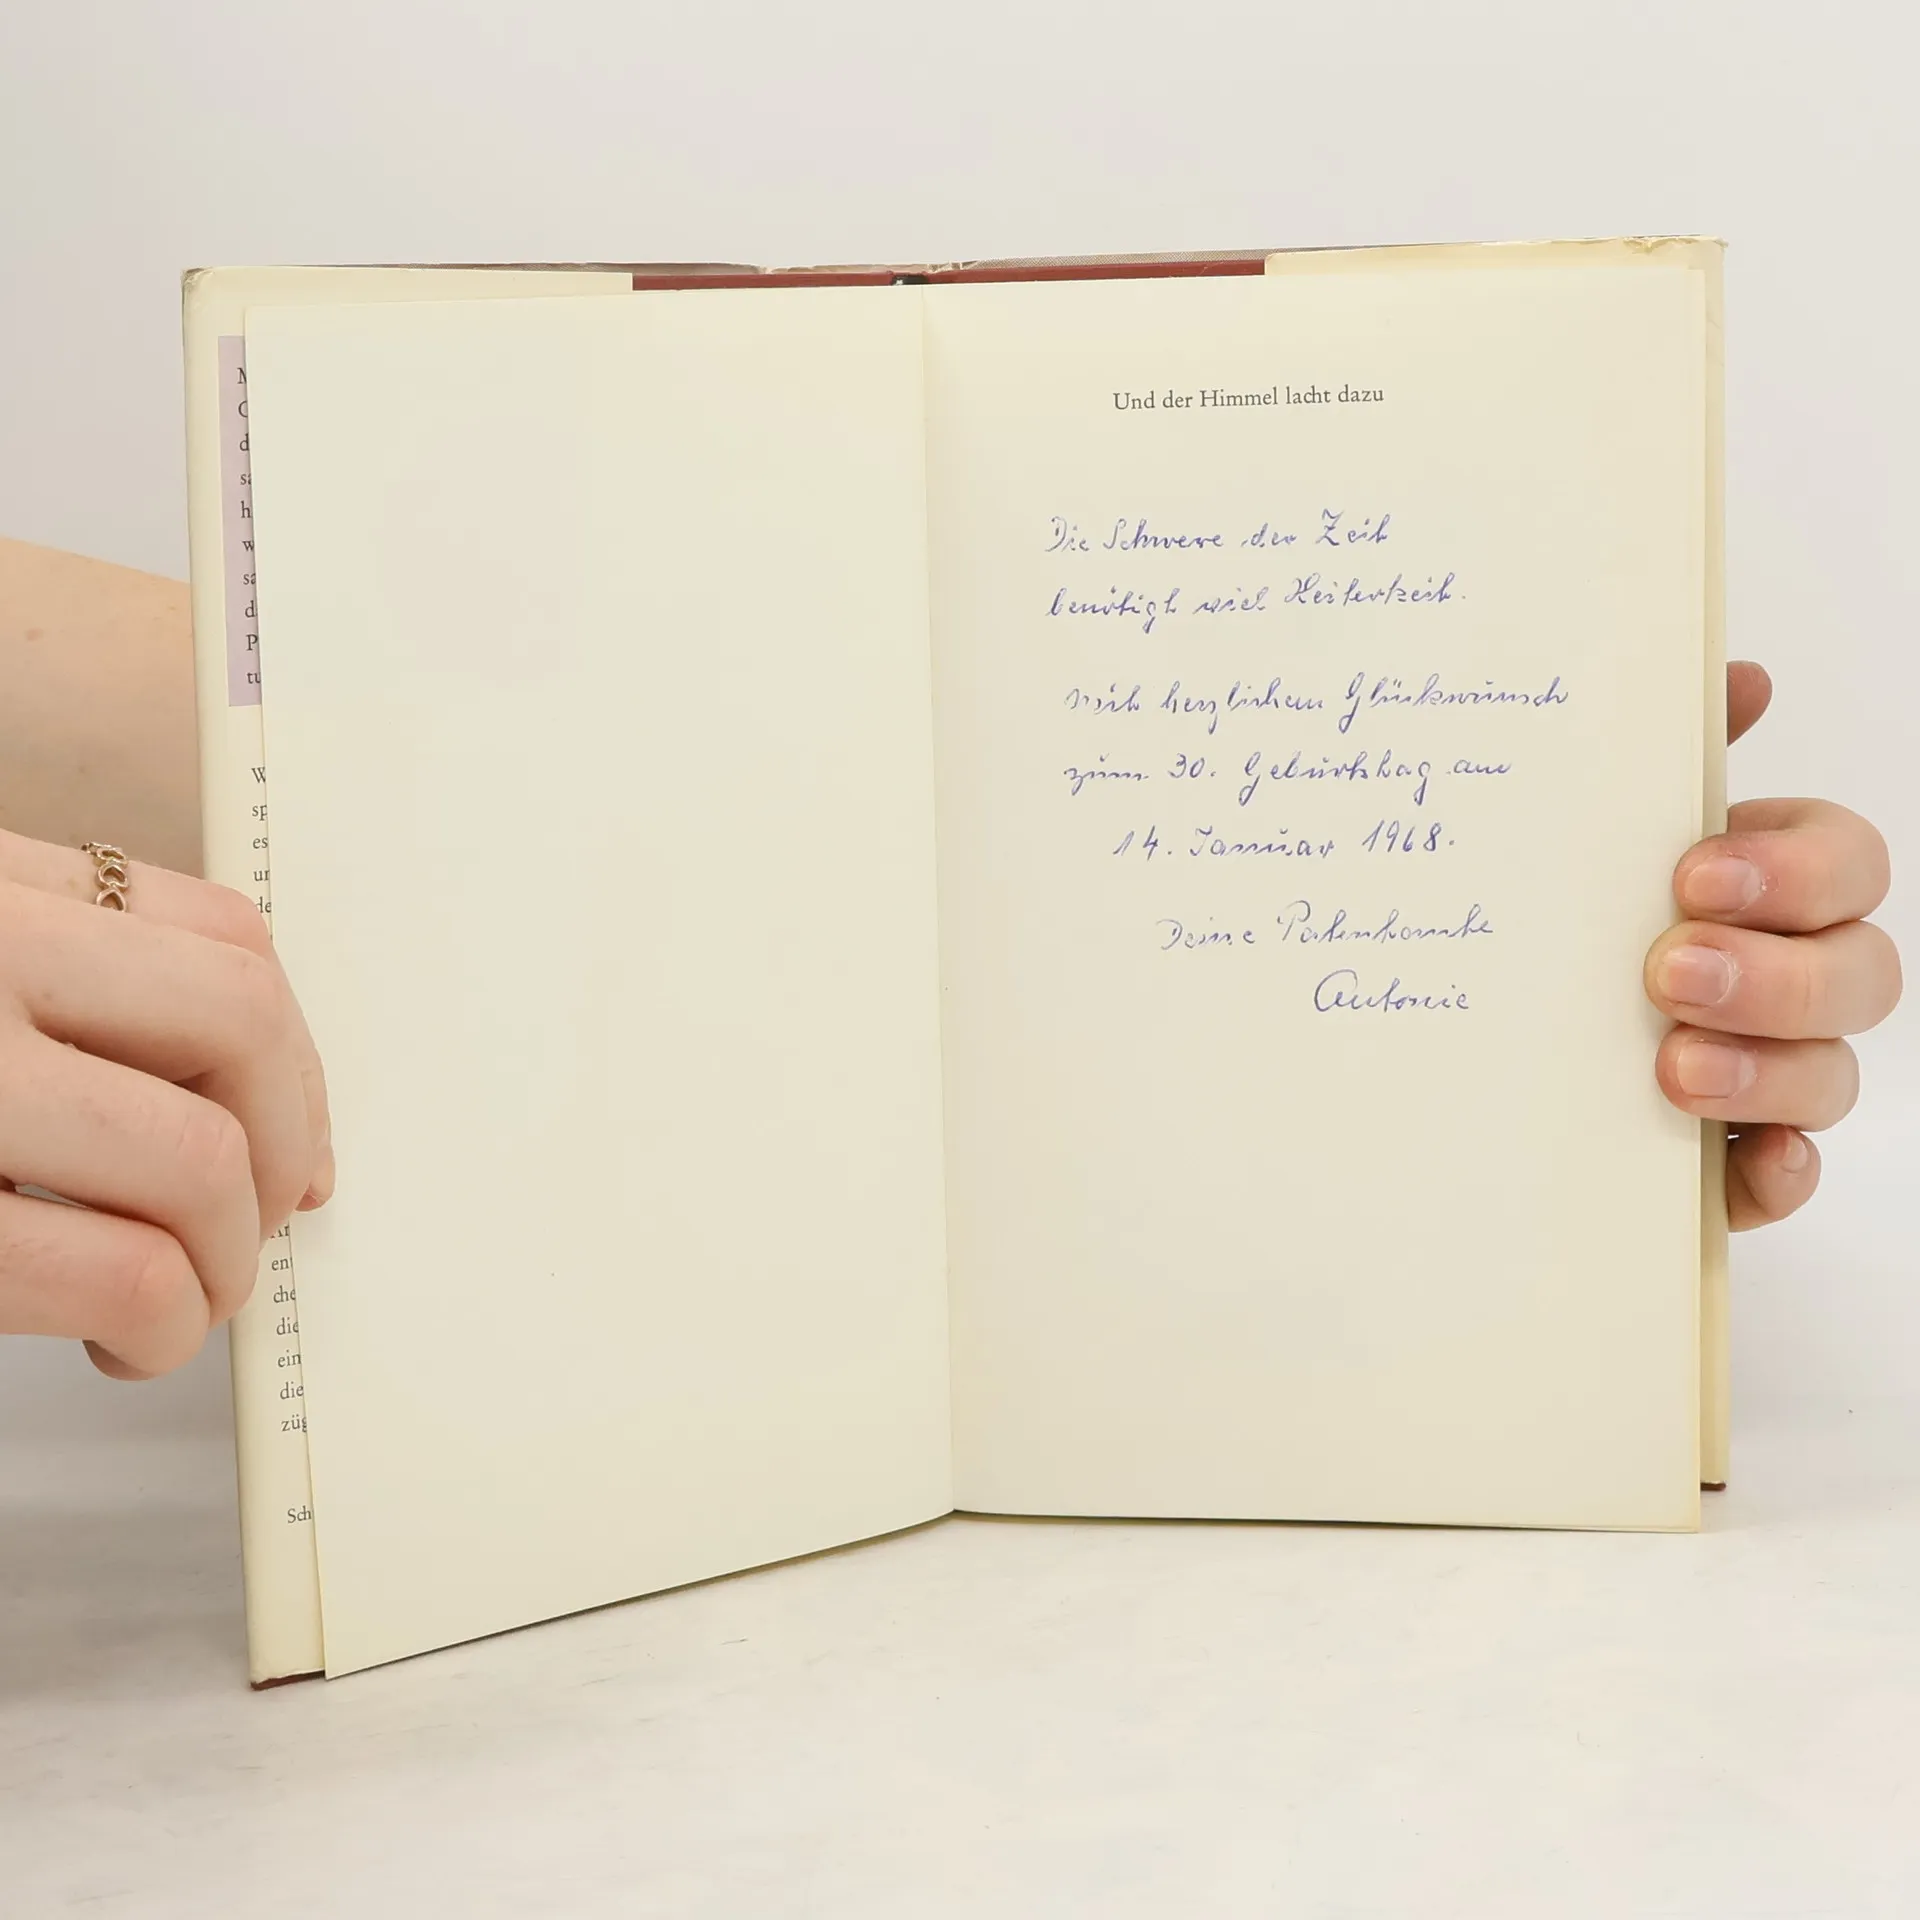 M
C
d
sa
h
w
sa
d
P
tu
W
sp
es
un
de
en
che
die
ein
die
züg
Sch
Und der Himmel lacht dazu
Die Schwere der Zeit
benötigt viel Heiterkeit.
Mit herzlichem Glückwunsch
zum 30. Geburtstag am
14. Januar 1968.
Deine Patentante
Antonie